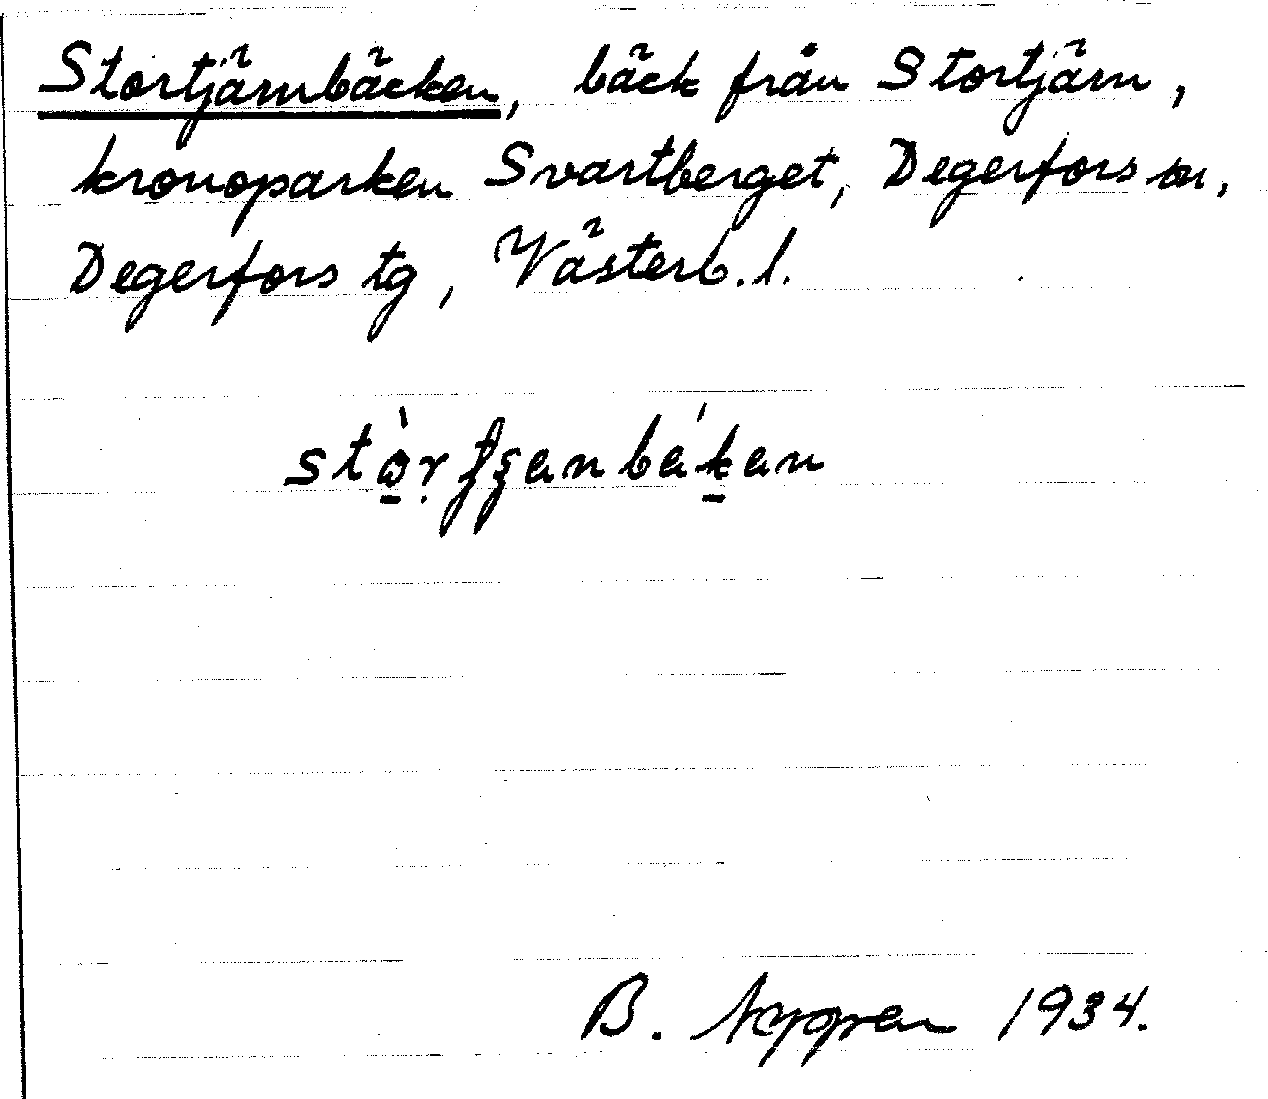 Stortjärnbäcken, bäck från Stortjärn,
kronoparken Svartberget, Degerfors sn,
Degerfors tg, Västerb. l.
B. Nygren 1934.